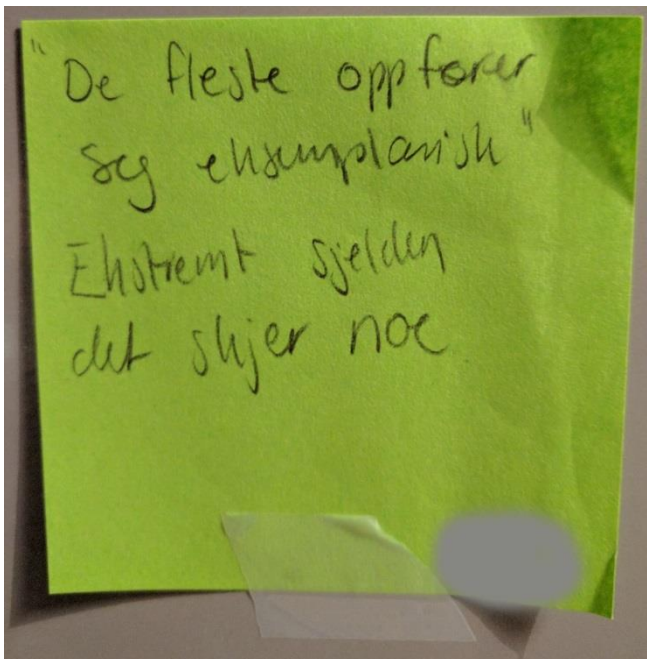 "De fleste oppfører
seg eksemplarisk"
Ekstremt sjelden
det skjer noe